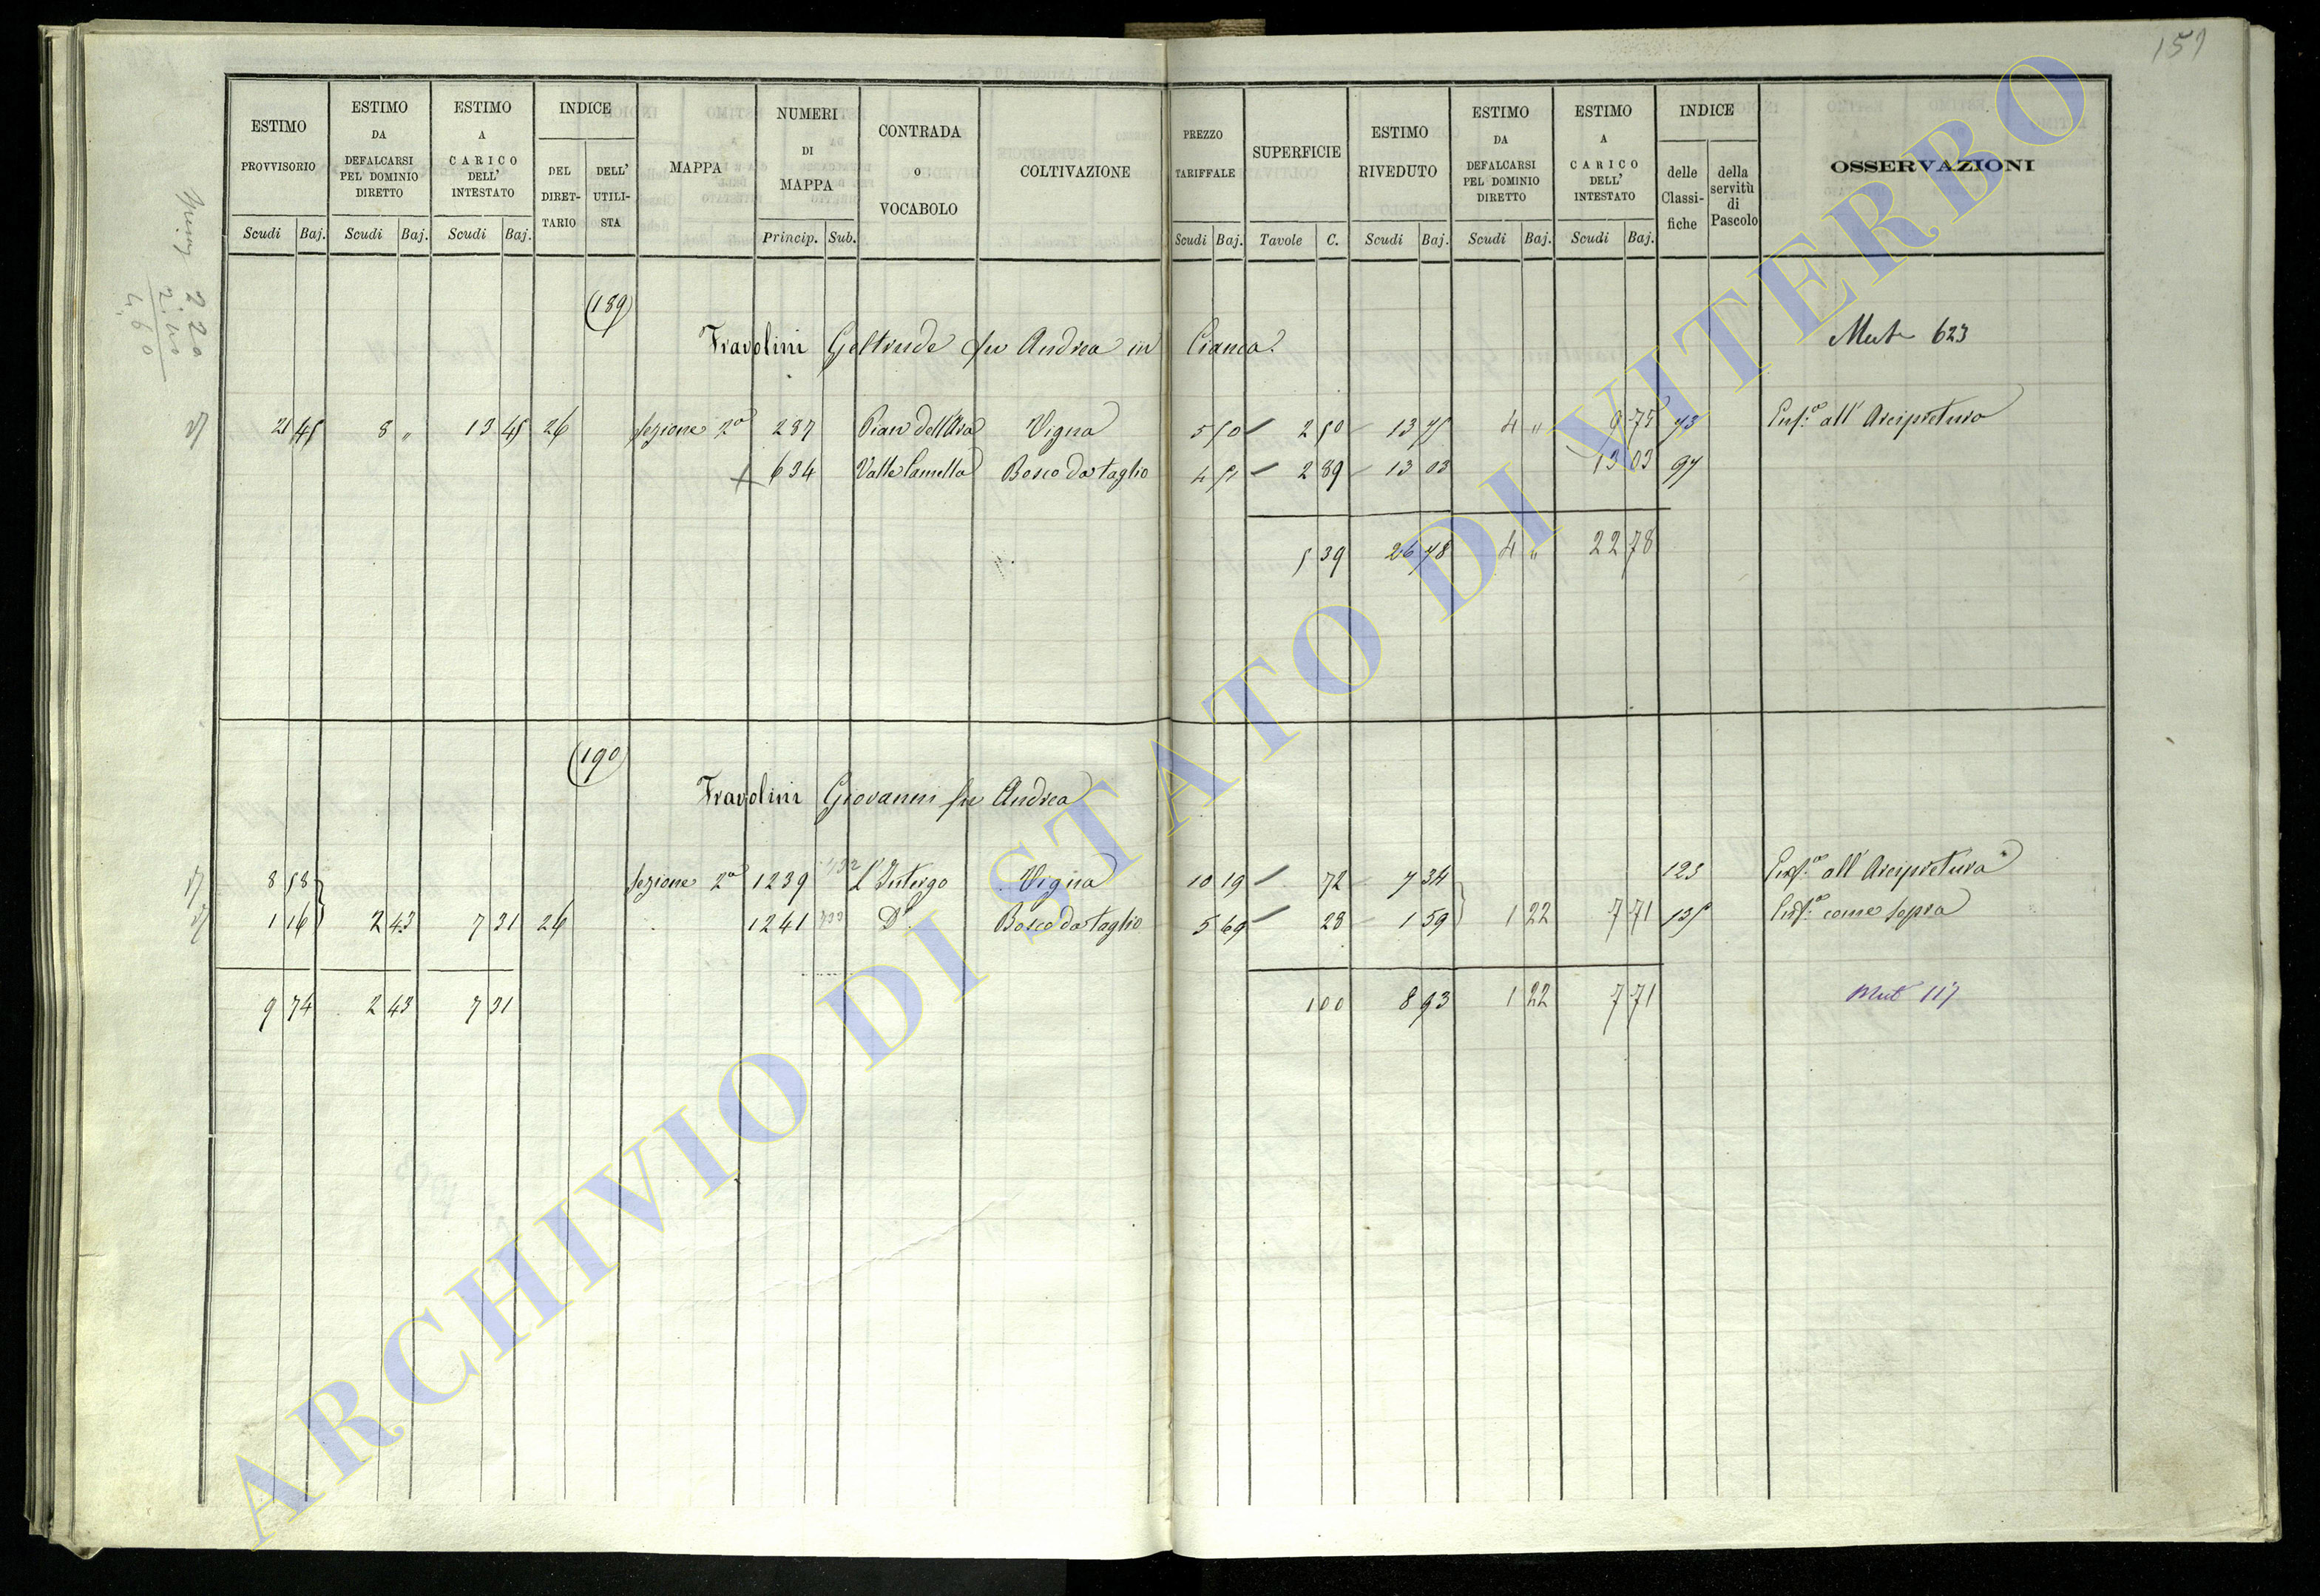 157
ESTIMO PROVVISORIO
ESTIMO DA DEFALCARSI PEL DOMINIO DIRETTO
ESTIMO A CARICO DELL' INTESTATO
INDICE
DEL DIRET- TARIO
DELL' UTILI- STA
MAPPA
NUMERI DI MAPPA
CONTRADA o VOCABOLO
COLTIVAZIONE
PREZZO TARIFFALE
SUPERFICIE
ESTIMO RIVEDUTO
ESTIMO DA DEFALCARSI PEL DOMINIO DIRETTO
ESTIMO A CARICO DELL' INTESTATO
INDICE
delle Classi- fiche
della servitù di Pascolo
OSSERVAZIONI
Scudi Baj. Scudi Baj. Scudi Baj. Princip. Sub. Scudi Baj. Tavole C. Scudi Baj. Scudi Baj. Scudi Baj.
(189)
Fravolini Geltrude fu Andrea in Cianca. Mut. 623
21 45 8 " 13 45 26 Sezione 2ª 237 Pian dell'Ara Vigna 5 50 2 50 13 75 4 " 9 75 73 Enf.ª all' Arcipretura
+ 634 Valle Camella Bosco da taglio 4 51 2 89 13 03 13 03 97
5 39 26 78 4 " 22 78
(190)
Fravolini Giovanni fu Andrea
8 58 Sezione 2ª 1239 L'Intergo Vigna 10 19 72 7 34 123 Enf.ª all' Arcipretura
1 16 2 43 7 31 26 1241 D.º Bosco da taglio 5 69 28 1 59 1 22 7 71 135 Enf.ª come sopra
9 74 2 43 7 31 1 00 8 93 1 22 7 71 Mut 117
2 20
4,60
ARCHIVIO DI STATO DI VITERBO